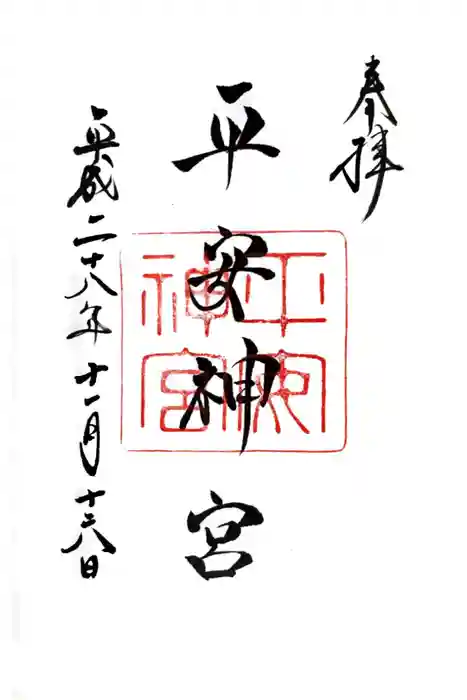 奉拝
平安神宮
平安
神宮
平成二十八年十一月十六日